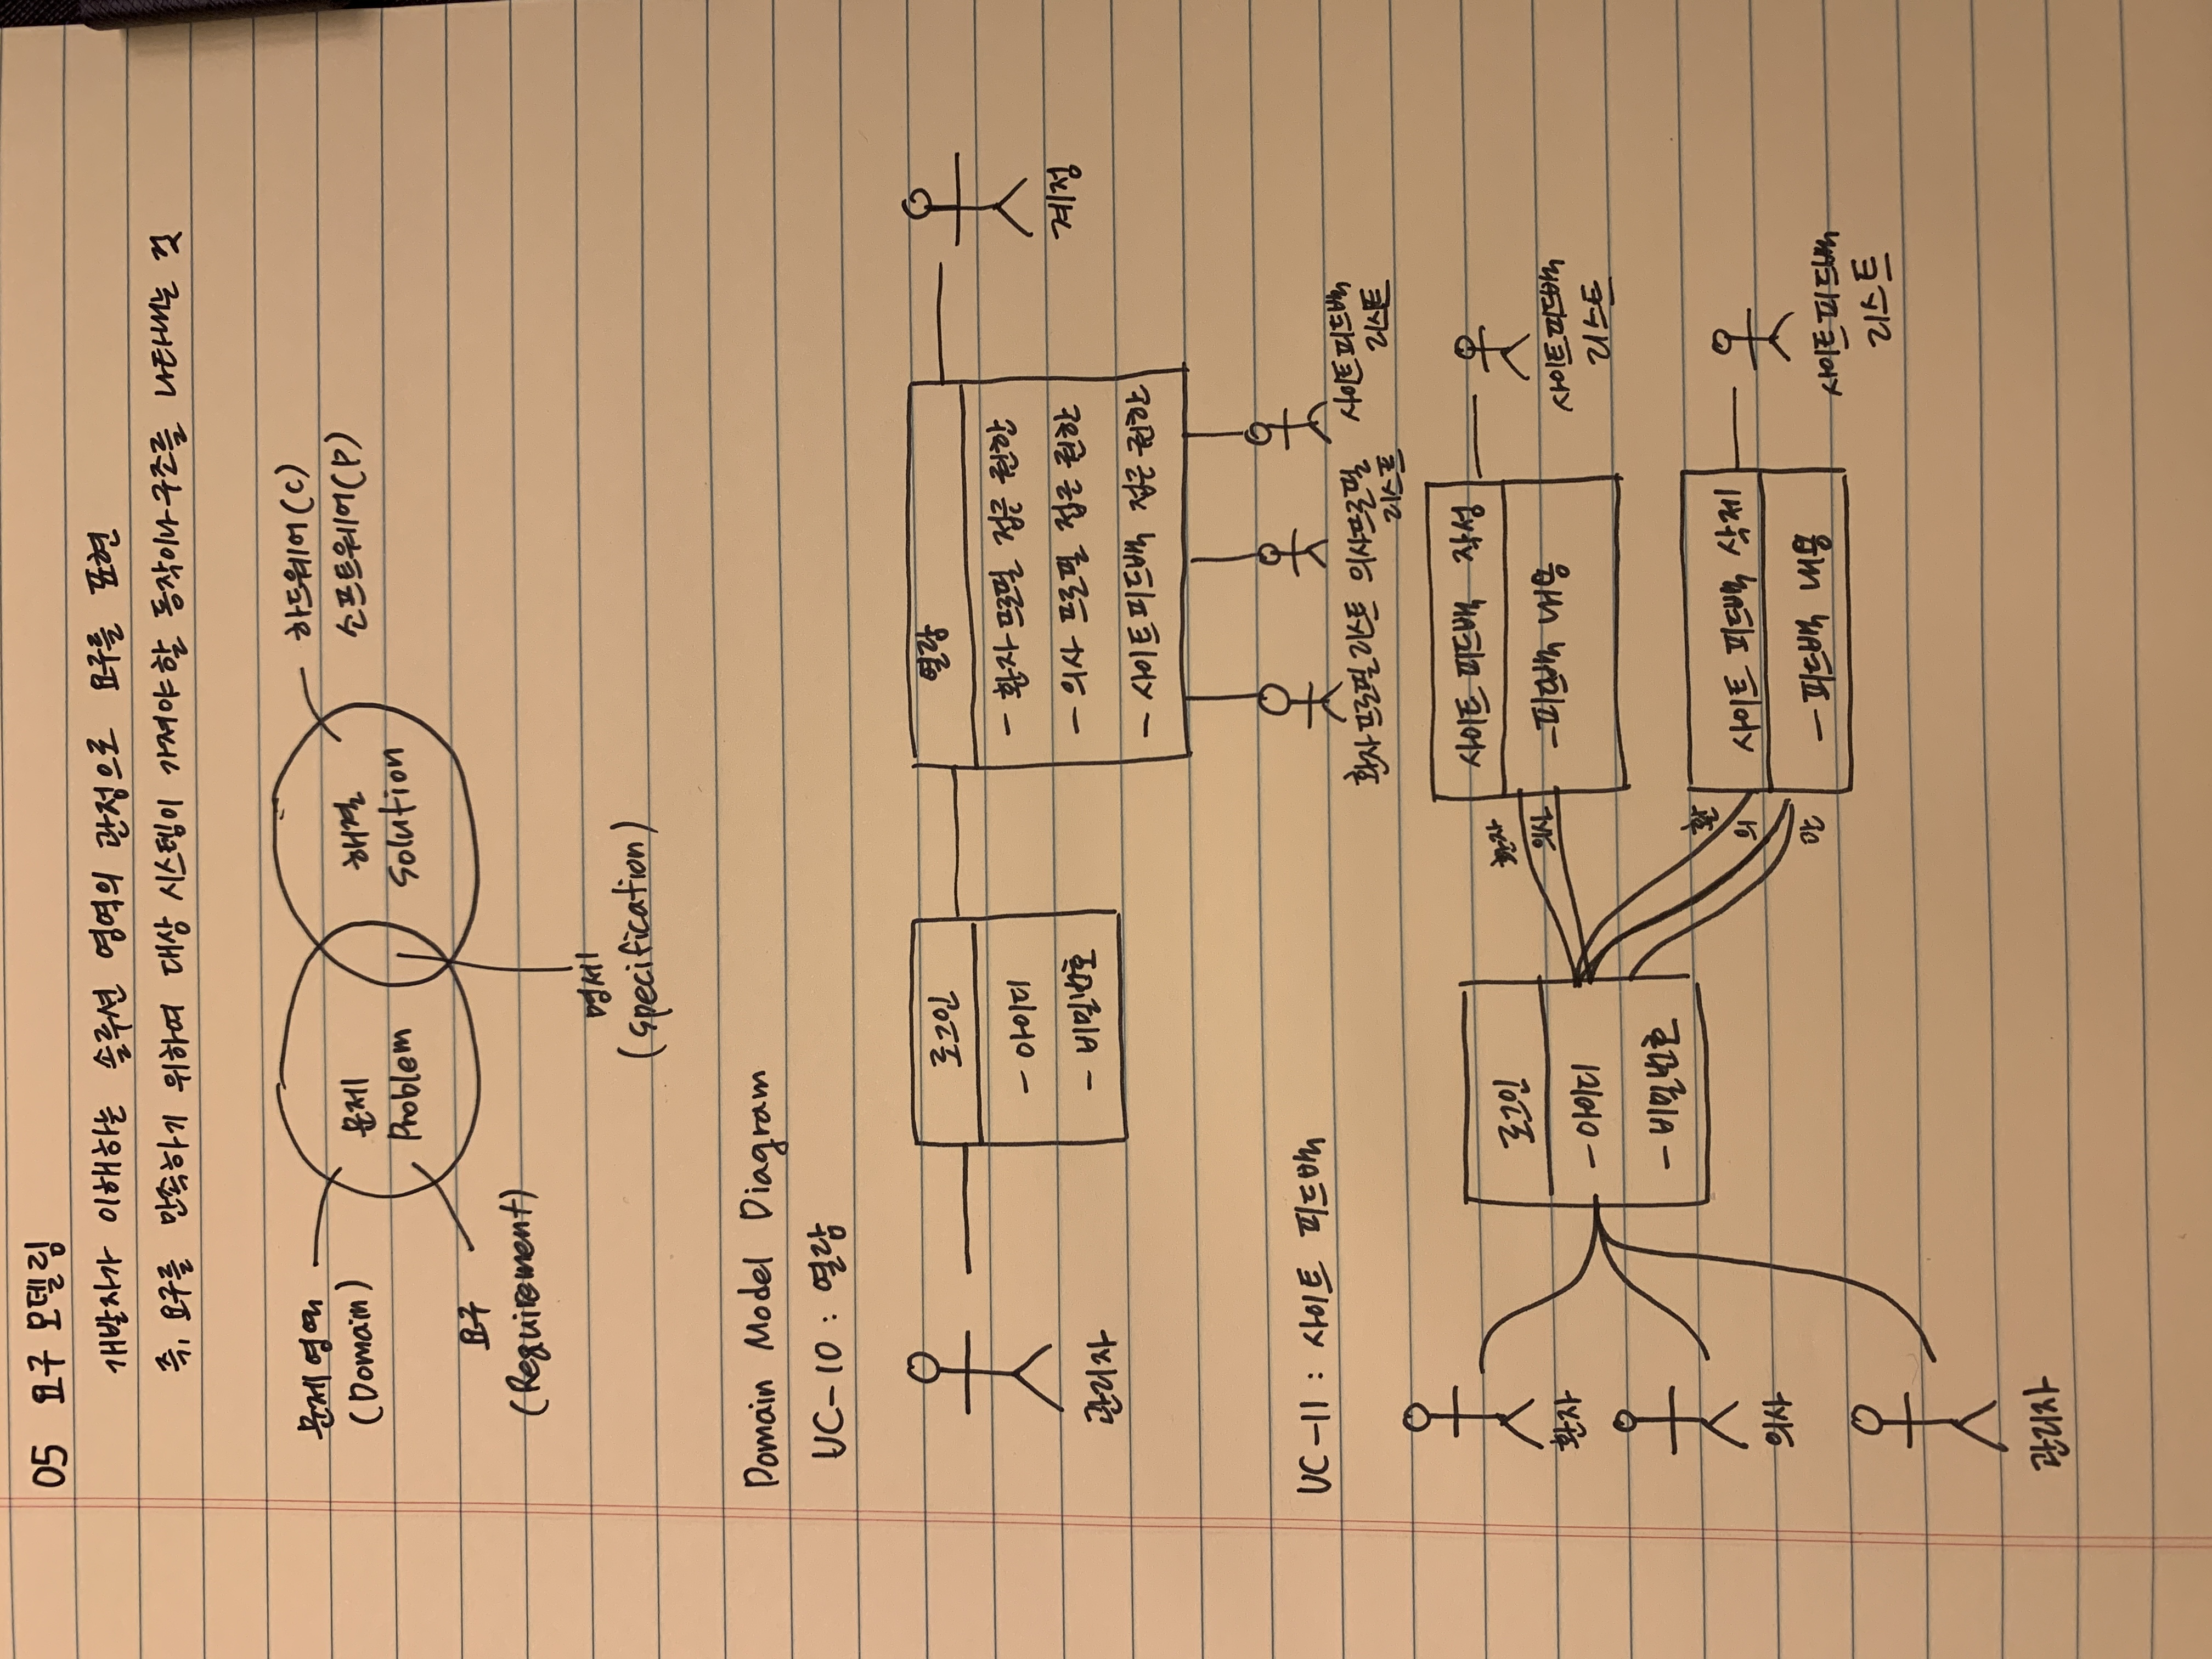 05 요구 모델링
개발자가 이해하는 솔루션 영역의 관정으로 요구를 표현
즉, 요구를 만족하기 위하여 대상 시스템이 가져야할 동작이나 구조를 나타내는 것
문제 영역
(Domain)
문제
Problem
해결
Solution
하드웨어(C)
소프트웨어(P)
요구
(Requirement)
명세
(Specification)
Domain Model Diagram
UC-10 : 열람
관리자
로그인
- 아이디
- 비밀번호
열람
- 환자 프로필 접근 권한
- 의사 프로필 접근 권한
- 사이트 피드백 접근 권한
계정
환자 프로필 리스트
의사프로필
리스트
사이트 피드백
리스트
UC-11 : 사이트 피드백
환자
의사
관리자
로그인
- 아이디
- 비밀번호
환자
의사
사이트 피드백 작성
- 피드백 내용
사이트 피드백
리스트
환
의
관
사이트 피드백 삭제
- 피드백 내용
사이트 피드백
리스트